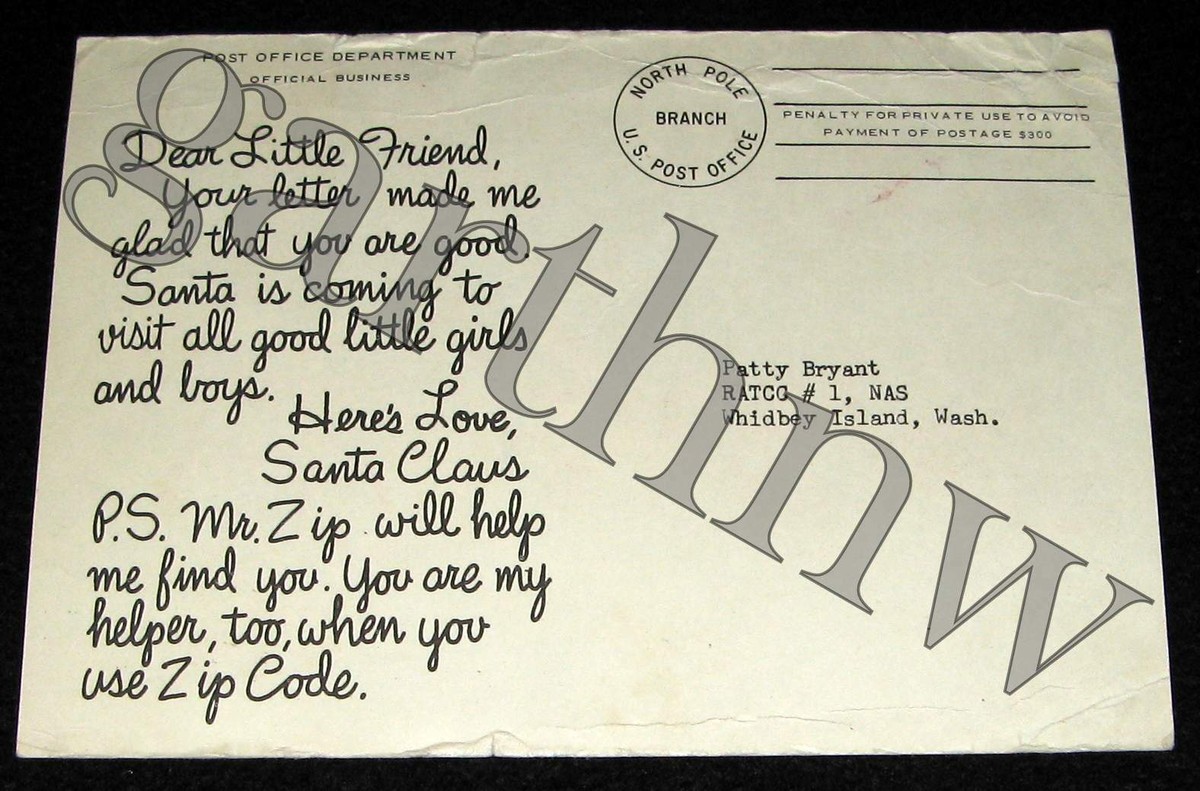 POST OFFICE DEPARTMENT
OFFICIAL BUSINESS
Dear Little Friend,
Your letter made me
glad that you are good.
Santa is coming to
visit all good little girls
and boys.
Here's Love,
Santa Claus
P.S. Mr. Zip will help
me find you. You are my
helper, too, when you
use Zip Code.
NORTH POLE
BRANCH
U.S. POST OFFICE
PENALTY FOR PRIVATE USE TO AVOID
PAYMENT OF POSTAGE $300
Patty Bryant
RATCC # 1, NAS
Whidbey Island, Wash.
garthnw